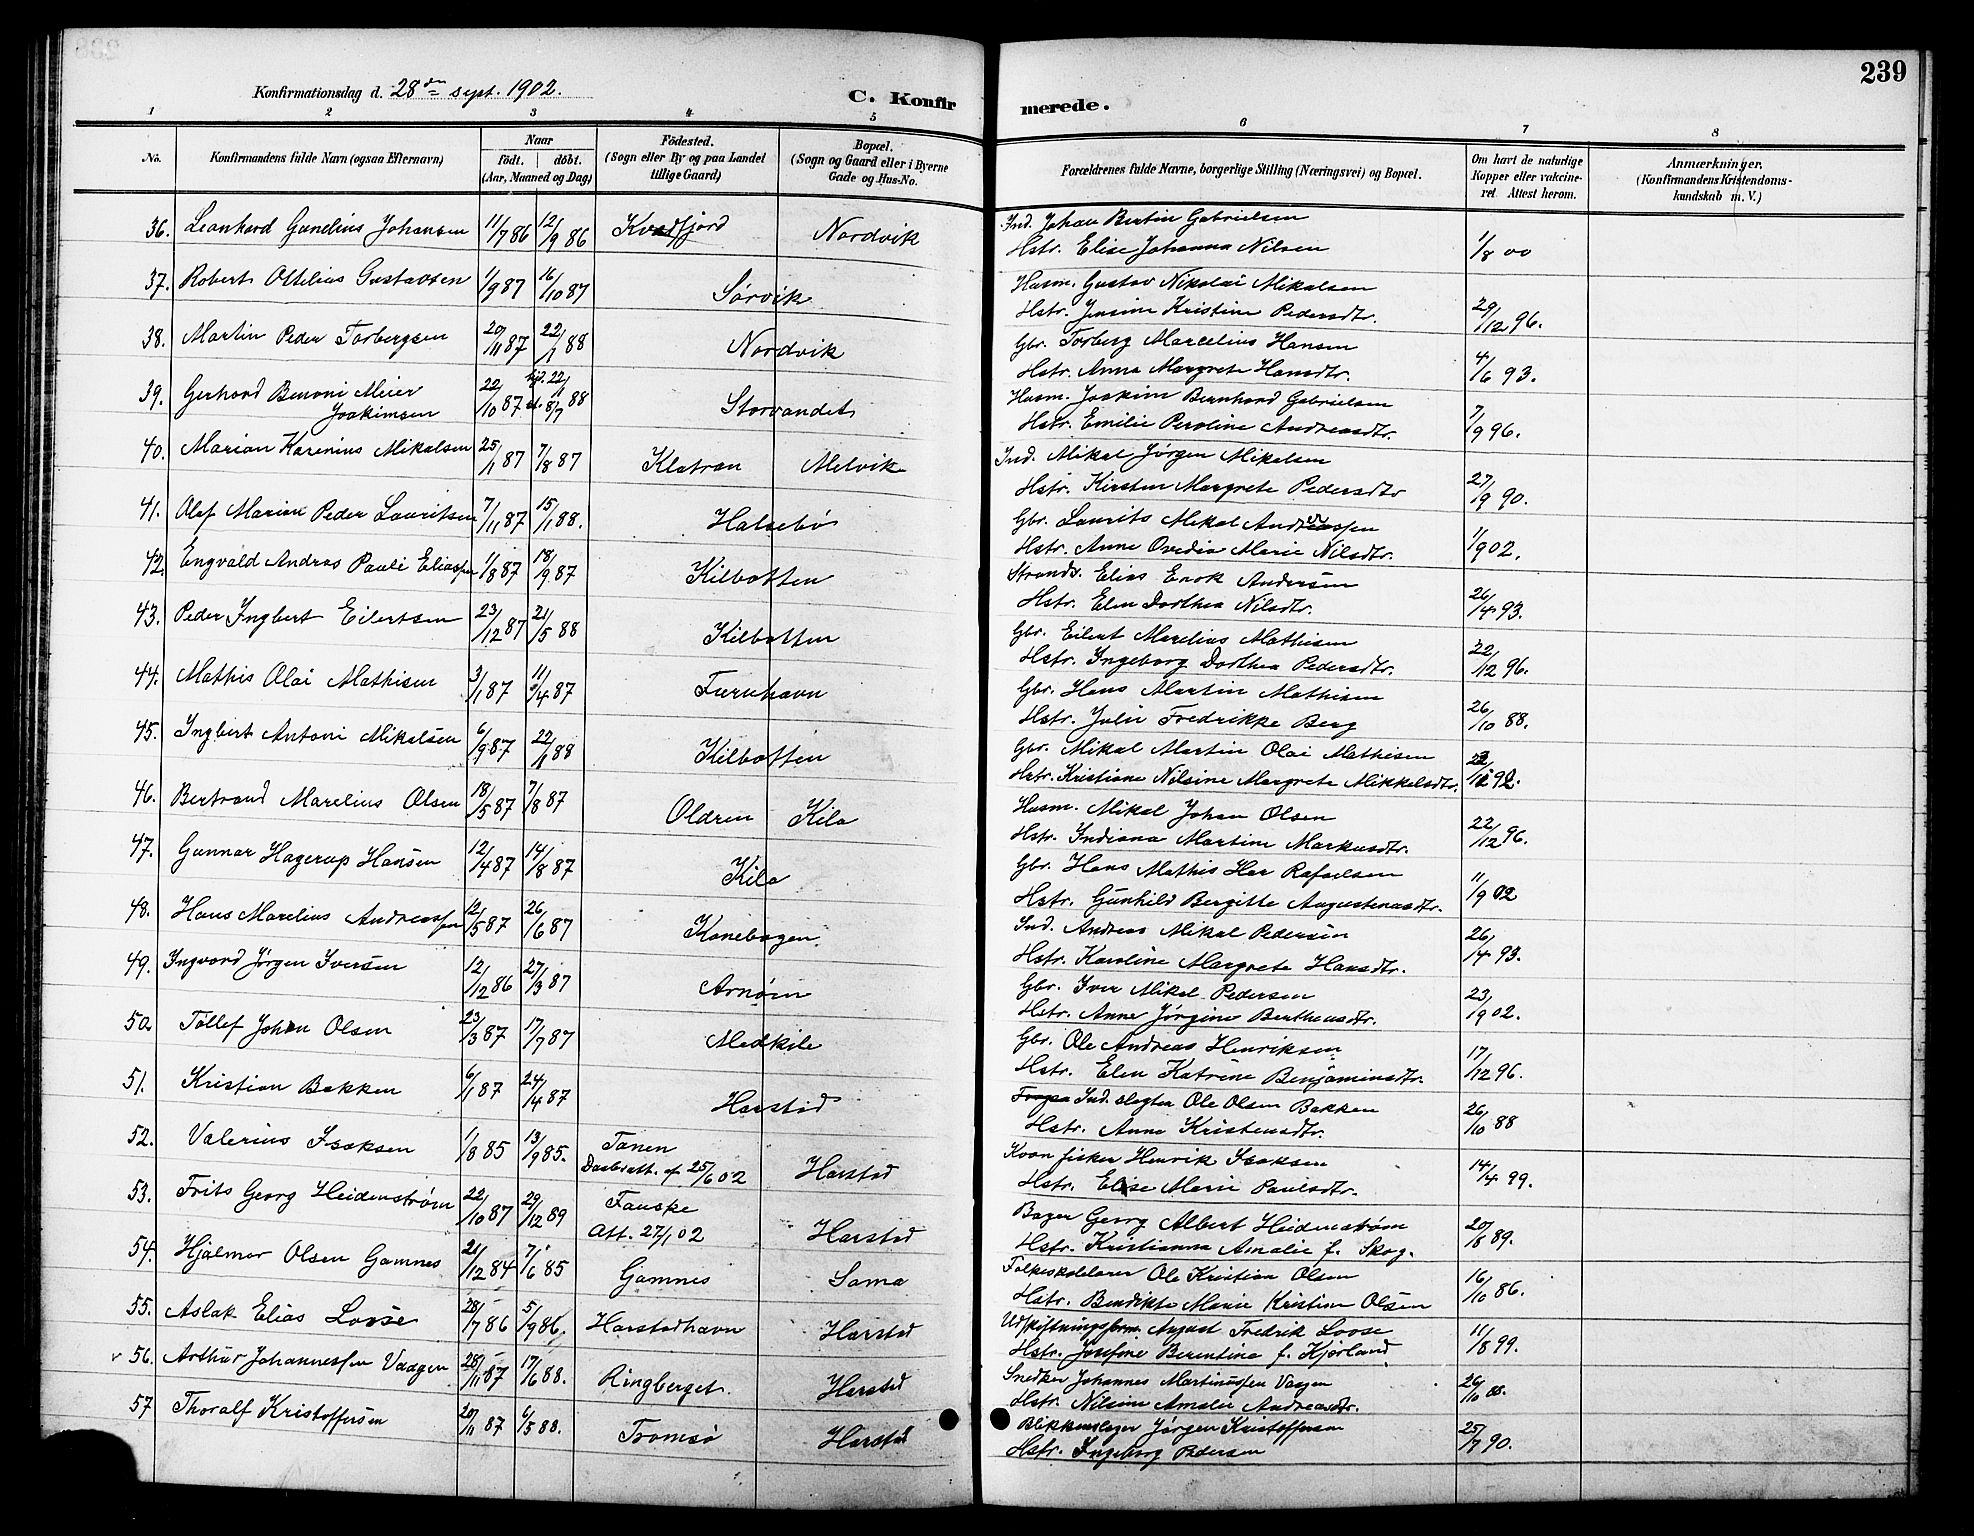 239
Konfirmationsdag d. 28de sept. 1902.
C. Konfirmerede.
1 2 3 4 5 6 7 8
No.
Konfirmandens fulde Navn (ogsaa Efternavn)
Naar
födt. döbt.
(Aar, Maaned og Dag)
Födested.
(Sogn eller By og paa Landet
tillige Gaard)
Bopæl.
(Sogn og Gaard eller i Byerne
Gade og Hus-No.
Forældrenes fulde Navne, borgerlige Stilling (Næringsvei) og Bopæl.
Om havt de naturlige
Kopper eller vakcine-
ret Attest herom.
Anmærkninger,
(Konfirmandens Kristendoms-
kundskab m. V.)
36. Leonhard Gunelius Johansen 11/7 86 12/9 86 Kvædfjord Nordvik Ind. Johan Bertin Gabrielsen
Hstr. Elise Johanna Nilsen 1/8 00
37. Robert Ottelius Gustavsen 1/9 87 16/10 87 Sørvik Husm. Gustav Nikolai Mikalsen
Hstr. Jensine Kristine Pedersdtr. 29/12 96.
38. Martin Peder Torbergsen 20/11 87 22/1 88 Nordvik Gbr. Torberg Marcelius Hansen
Hstr. Anna Margrete Hansdtr. 4/6 93.
39. Gerhard Benoni Meier 22/10 87 hjd. 22/1 88 Storvandet Husm. Joakim Bernhard Gabrielsen
Joakimsen 8/7
Hstr. Emilie Peroline Andreasdtr. 7/9 96.
40. Marian Karenius Mikalsen 25/1 87 7/8 87 Klatran Melvik Ind. Mikal Jørgen Mikalsen
Hstr. Kirsten Margrete Pedersdtr 27/9 90.
41. Olaf Marian Peder Lauritsen 7/11 87 15/1 88. Halsebø Gbr. Laurits Mikal Andreassen
Hstr. Anne Ovedia Marie Nilsdtr. 1/9 02.
42. Engvald Andras Pauli Eliassen 1/8 87 18/9 87 Kilbotten Strands. Elias Enok Andersen
Hstr. Elen Dorthea Nilsdtr. 26/4 93.
43. Peder Ingbert Eilertsen 23/12 87 21/5 88 Kilbotten Gbr. Eilert Marelius Mathisen
Hstr. Ingeborg Dorthea Pedersdtr. 22/12 96.
44. Mathis Olai Mathisen 3/1 87 11/4 87 Furuhavn Gbr. Hans Martin Mathisen
Hstr. Julie Fredrikke Berg 26/10 88.
45. Ingbert Antoni Mikalsen 6/9 87 22/1 88 Kilbotten Gbr. Mikal Martin Olai Mathisen
Hstr. Kristiane Nilsine Margrete Mikkelsdtr. 92.
46. Bertrand Marelius Olsen 18/5 87 7/8 87 Oldren Kila Husm. Mikal Johan Olsen
Hstr. Indiana Martine Markusdtr. 22/12 96.
47. Gunnar Hagerup Hansen 12/4 87 14/8 87 Kila Gbr. Hans Mathis Her Rafaelsen
Hstr. Gunhild Bergitte Augustenusdtr. 11/9 02
48. Hans Marelius Andreassen 12/5 87 26/6 87 Kanebogen. Ind. Andreas Mikal Pedersen
Hstr. Karoline Margrete Hansdtr. 26/4 93.
49. Ingvard Jørgen Iversen 12/12 86 27/3 87 Arnøen Gbr. Iver Mikal Pedersen
Hstr. Anne Jørgine Bertheusdtr. 23/9 02.
50. Tollef Johan Olsen 23/3 87 17/7 87 Medkile Gbr. Ole Andreas Henriksen
Hstr. Elen Katrine Benjaminsdtr. 17/12 96.
51. Kristian Bakken 6/1 87 24/4 87 Harstad Ind. slagter Ole Olsen Bakken
Hstr. Anne Kristensdtr. 26/10 88
52. Valerius Isaksen 1/8 85 13/9 85. Tanen Harstad Kvæn fisker Henrik Isaksen
Daabsatt. af 25/6 02 Hstr. Elise Marie Paulsdtr. 14/4 99.
53. Frits Georg Heidenstrøm 22/10 87 29/12 89 Fauske Harstad Bager Georg Albert Heidenstrøm
Att. 27/1 02 Hstr. Kristianna Amalie f. Skog. 20/8 89.
54. Hjalmar Olsen Gamnes 21/12 84 7/6 85 Gamnes Sama Folkeskolelærer Ole Kristian Olsen
Hstr. Bendikte Marie Kristine Olsen 16/10 86.
55. Aslak Elias Loose 28/7 86 5/9 86. Harstadhavn Harstad Udskiftningsform. August Fredrik Loose
Hstr. Josefine Berentine f. Kjørland. 11/8 99.
v 56. Arthur Johannessen Vaagen 28/11 87 17/6 88. Ringberget. Harstad Snedker Johannes Martinussen Vaagen
Hstr. Nilsine Amalie Andreasdtr. 26/10 88.
57 Thoralf Kristoffersen 20/11 87 6/5 88. Tromsø Harstad Blikkenslager Jørgen Kristoffersen
Hstr. Ingeborg Pedersen 25/7 90.